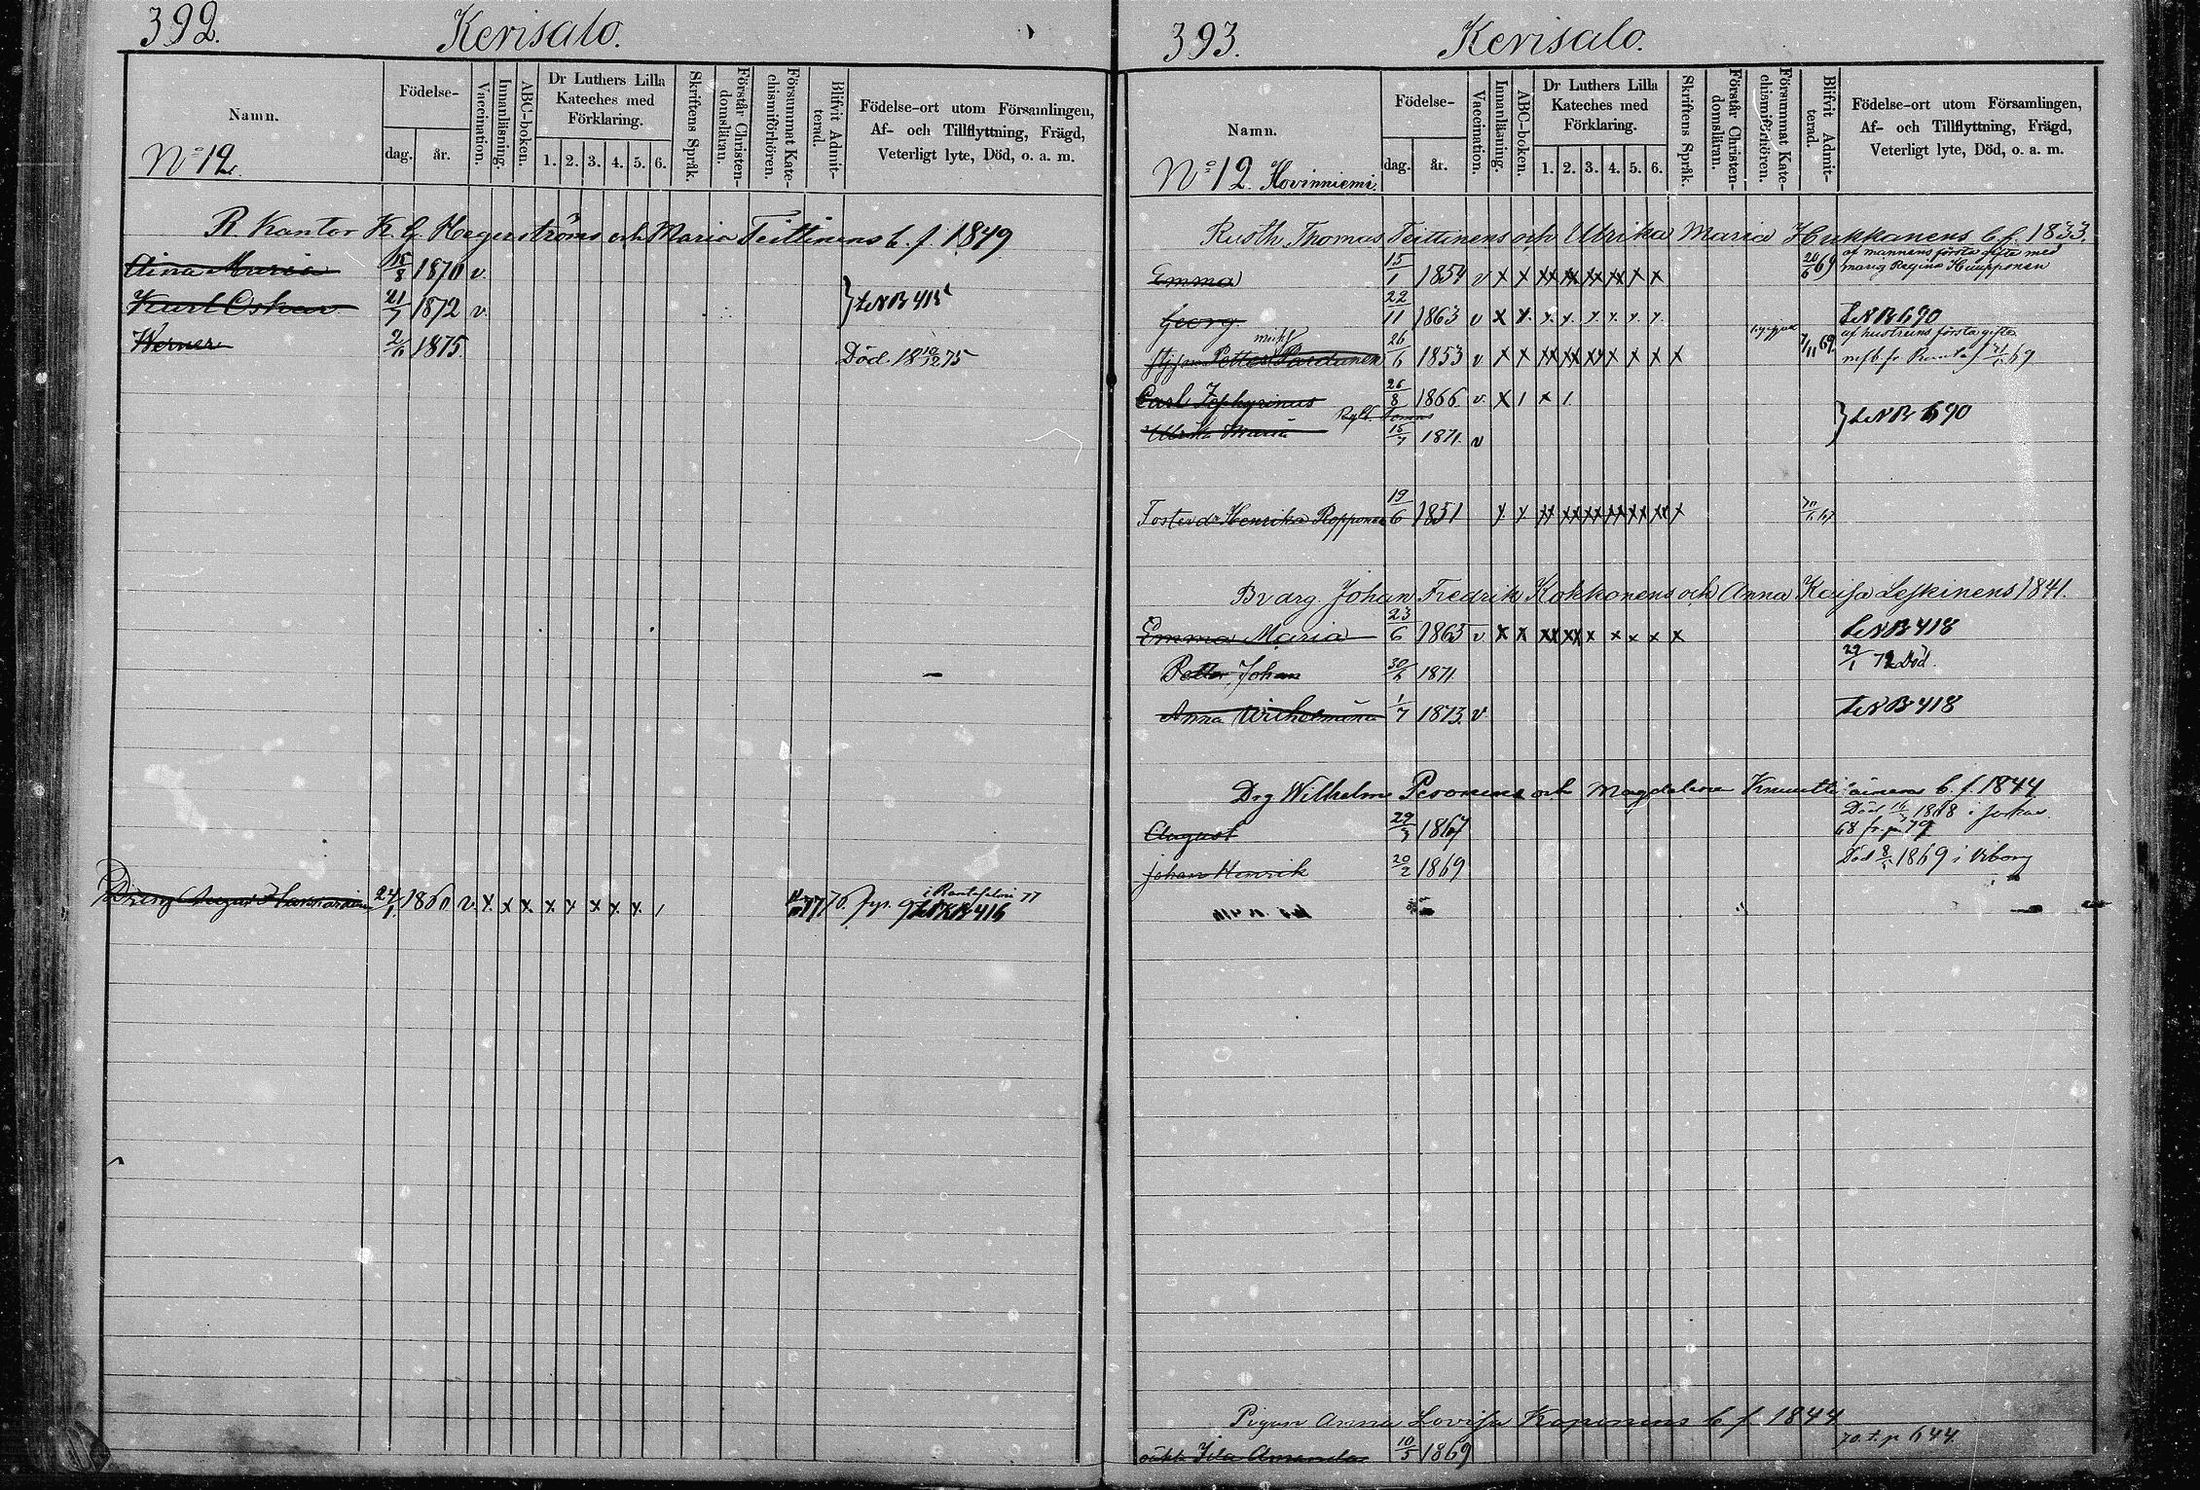 392. Kerisalo.
Namn. Födelse- dag. år. Vaccination. Innanläsning. ABC-boken. Dr Luthers Lilla Kateches med Förklaring. 1. 2. 3. 4. 5. 6. Skriftens Språk. Förstår Christendomsläran. Försummat Katechismiförhören. Blifvit Admitterad. Födelse-ort utom Församlingen, Af- och Tillflyttning, Frägd, Veterligt lyte, Död, o. a. m.
No 12.
R Kantor K. G. Hagerströms och Maria Teittinens b. f. 1849
Aina Maria 15/8 1870 v.
Karl Oskar 21/7 1872 v. } LNB 415
Werner 2/11 1875. Död 18 10/12 75
Dreng August 24/1 1860 v. x x x x x x x x / 77 i Rantasalmi 77 416
393. Kerisalo.
Namn. Födelse- dag. år. Vaccination. Innanläsning. ABC-boken. Dr Luthers Lilla Kateches med Förklaring. 1. 2. 3. 4. 5. 6. Skriftens Språk. Förstår Christendomsläran. Försummat Katechismiförhören. Blifvit Admitterad. Födelse-ort utom Församlingen, Af- och Tillflyttning, Frägd, Veterligt lyte, Död, o. a. m.
No 12. Hovinniemi.
Rusth. Thomas Teittinens och Ulrika Maria Hukkanens b. f. 1833.
Emma 15/1 1854 v x x xx xx xx xx x x 20/6 69 af mannens första gifte med Regina Huupponen
Georg 22/11 1863 v x x. x. x. x. x. x. x. LNB 690
Petter Pardanen 26/6 1853 v x x xx xx xx x x x x 7/11 69 af hustruns första gifte
Carl Zephyrinus 26/8 1866 v. x 1 x 1. } LNB 690
Ulrika Maria 15/7 1871. v
Fosterdr Henrika Ropponen 19/6 1851 x x xx xx xx xx xx xx x
Johan Fredrik Kokkonens och Anna Kaisa Leskinens 1841.
Emma Maria 23/6 1865 v x x xx xx x x x x x LNB 418
Petter Johan 30/6 1871 29/1 72 Död.
Anna Wilhelmina 1/7 1873. v. LNB 418
Drg Wilhelm och Magdalena b. f. 1844
August 29/3 1867 Död 1868 i
Johan Henrik 20/2 1869 Död 8/5 1869 i Viborg
Pigan Anna Lovisa b f 1844
oäkta Ida Amanda 10/5 1869 70. t. p 644.